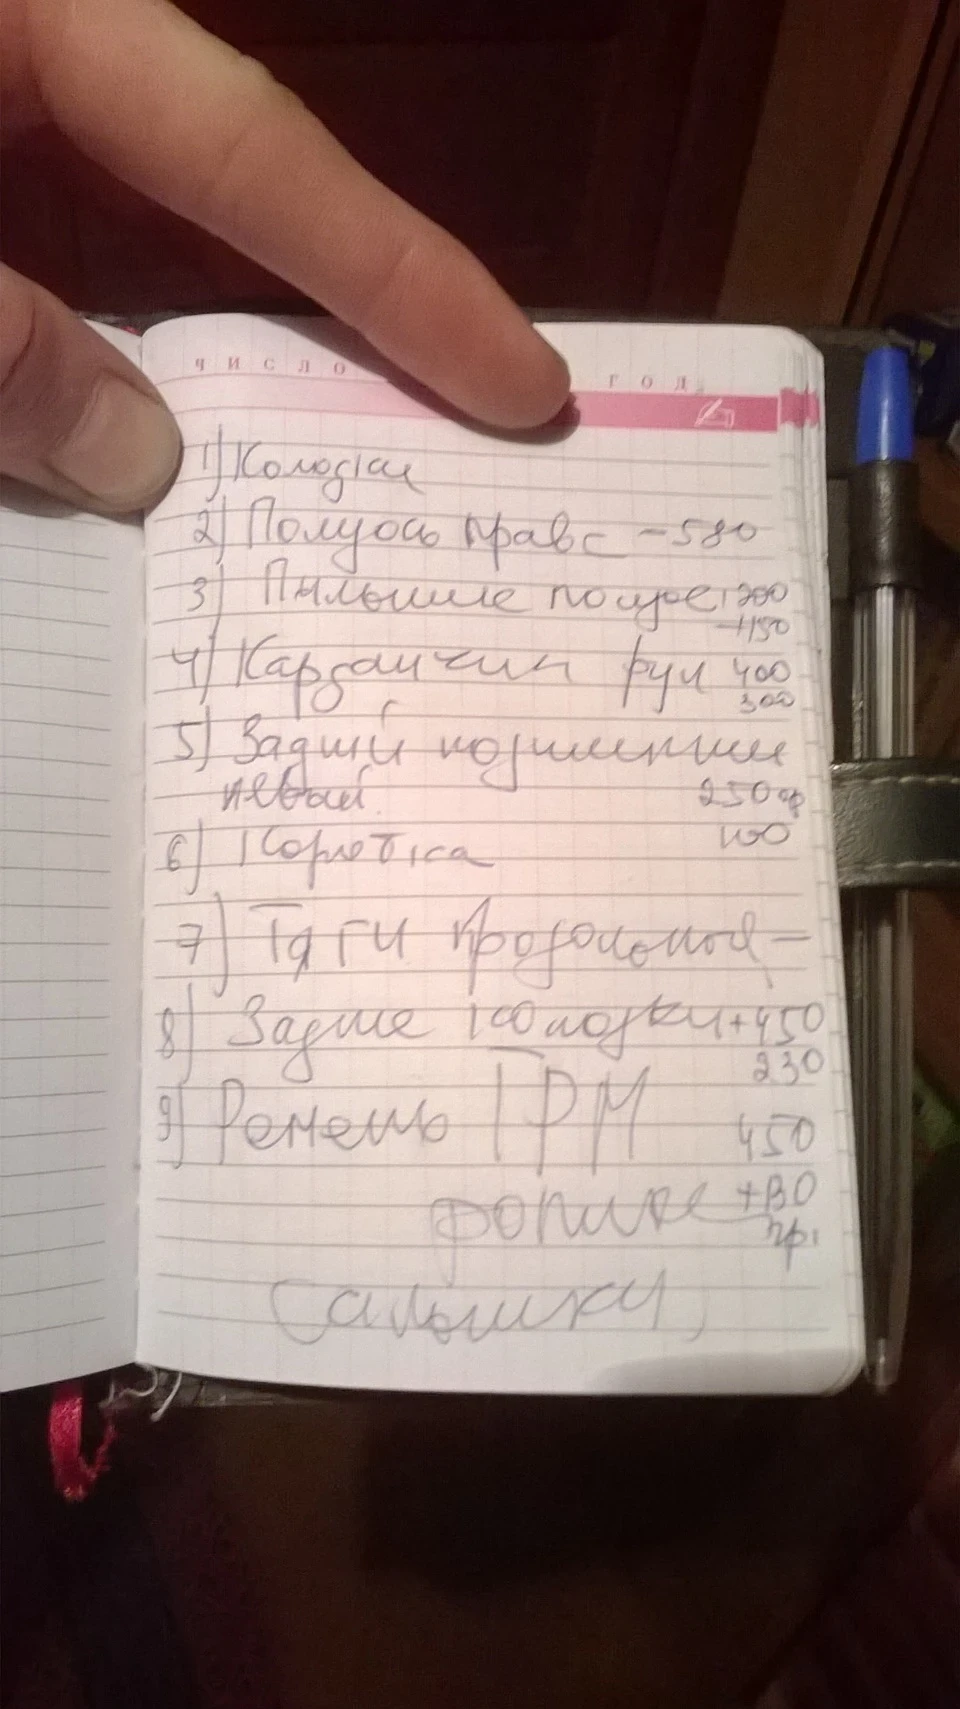 число год
1) Колодки
2) Полуось прав - 580
3) Пыльник полуос 200
+150
4) Карданчик рул 400
300
5) Задний подшипник
левый. 250 гр
100
6) Коробка
7) Тяги продольной -
8) Задние колодки + 450
230
9) Ремень ГРМ 450
ролик + 130
гр.
Сальники,